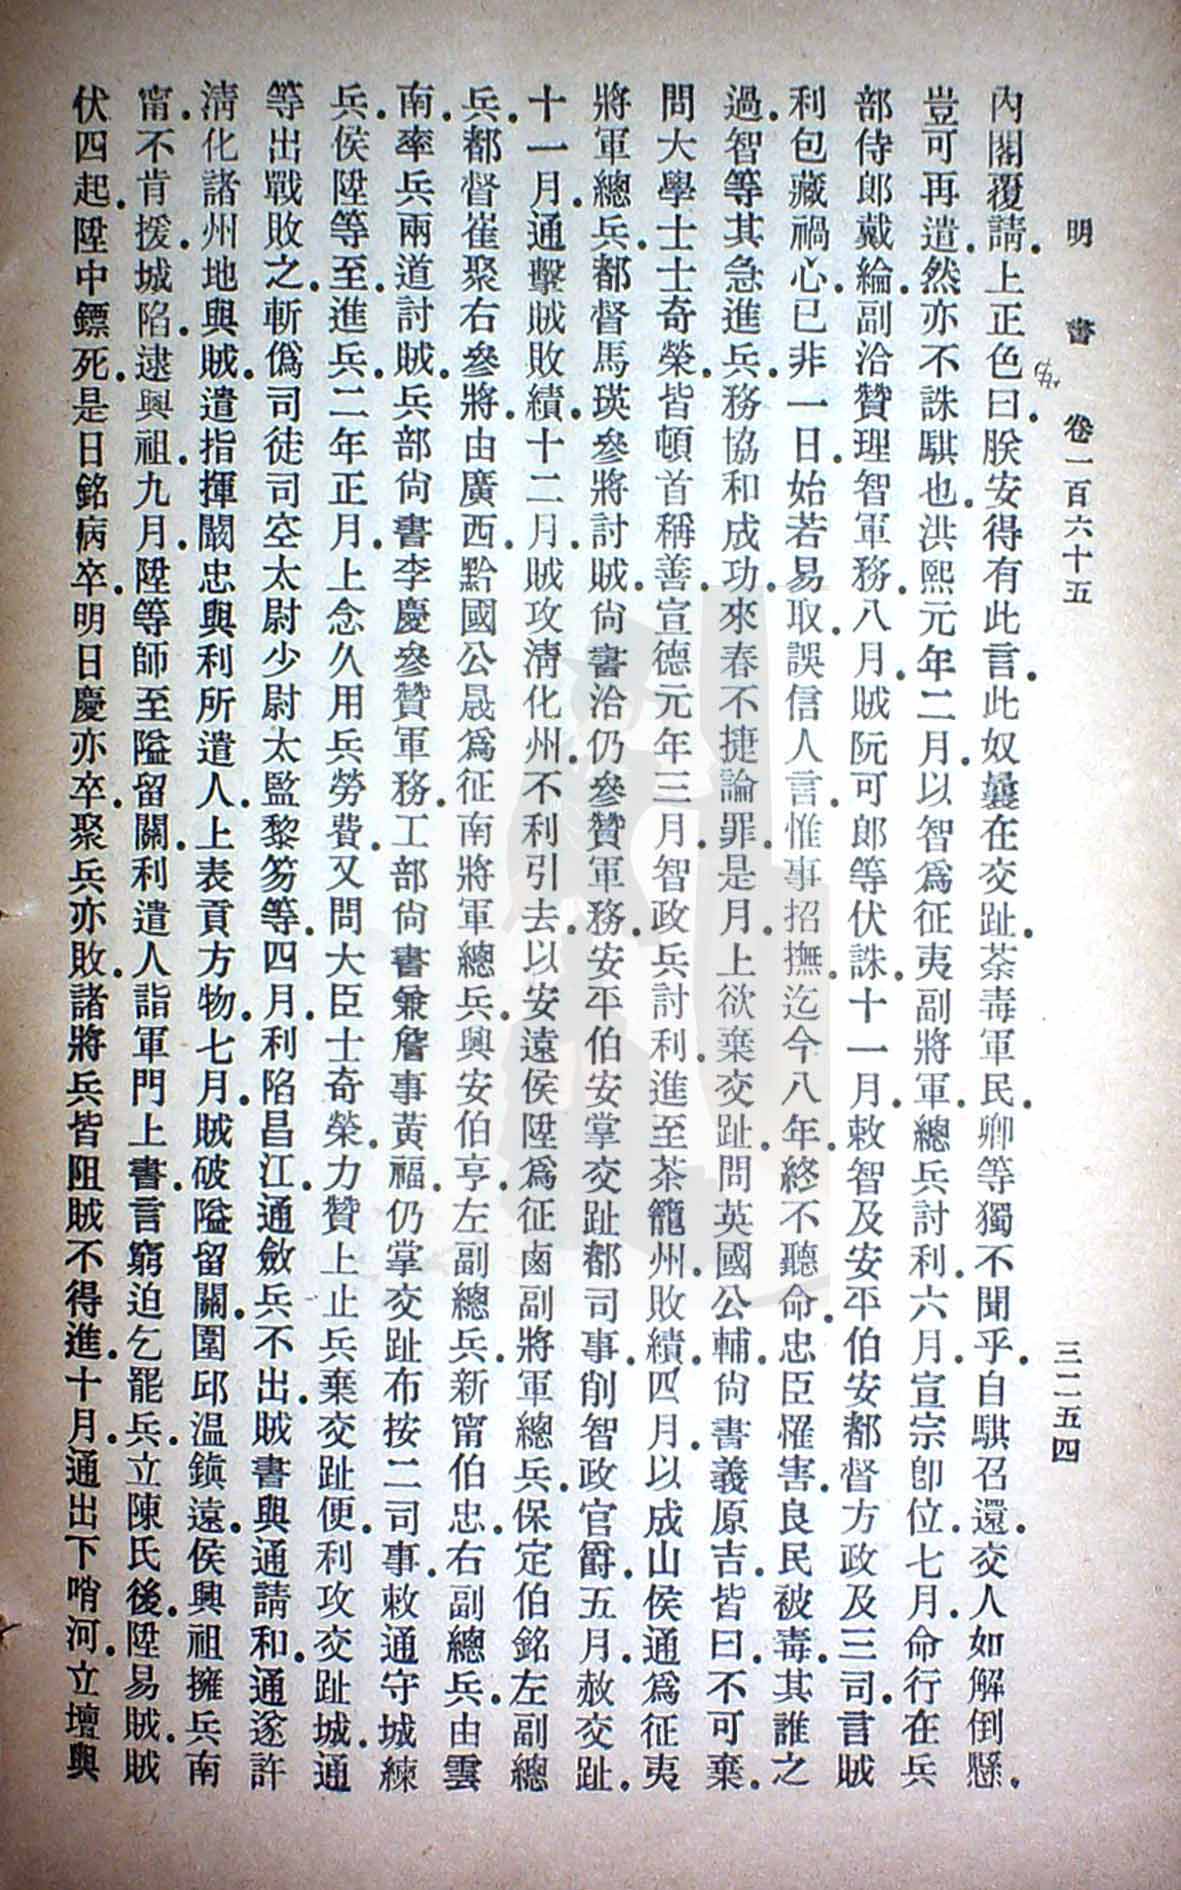 明書 卷一百六十五 三二五四
內閣覆請上正色曰朕安得有此言此奴曩在交趾荼毒軍民卿等獨不聞乎自騏召還交人如解倒懸
豈可再遣然亦不誅騏也洪熙元年二月以智爲征夷副將軍總兵討利六月宣宗卽位七月命行在兵
部侍郎戴綸副洽贊理智軍務八月賊阮可郎等伏誅十一月敕智及安平伯安都督方政及三司言賊
利包藏禍心已非一日始若易取誤信人言惟事招撫迄今八年終不聽命忠臣罹害良民被毒其誰之
過智等其急進兵務協和成功來春不捷論罪是月上欲棄交趾問英國公輔尙書義原吉皆曰不可棄
問大學士士奇榮皆頓首稱善宣德元年三月智政兵討利進至茶籠州敗績四月以成山侯通爲征夷
將軍總兵都督馬瑛參將討賊尙書洽仍參贊軍務安平伯安掌交趾都司事削智政官爵五月赦交趾
十一月通擊賊敗績十二月賊攻淸化州不利引去以安遠侯陞爲征鹵副將軍總兵保定伯銘左副總
兵都督崔聚右參將由廣西黔國公晟爲征南將軍總兵興安伯亨左副總兵新甯伯忠右副總兵由雲
南率兵兩道討賊兵部尙書李慶參贊軍務工部尙書兼詹事黃福仍掌交趾布按二司事敕通守城練
兵侯陞等至進兵二年正月上念久用兵勞費又問大臣士奇榮力贊上止兵棄交趾便利攻交趾城通
等出戰敗之斬僞司徒司空太尉少尉太監黎笏等四月利陷昌江通斂兵不出賊書與通請和通遂許
淸化諸州地與賊遣指揮闞忠與利所遣人上表貢方物七月賊破隘留關圍邱溫鎭遠侯興祖擁兵南
甯不肯援城陷逮興祖九月陞等師至隘留關利遣人詣軍門上書言窮迫乞罷兵立陳氏後陞易賊賊
伏四起陞中鏢死是日銘病卒明日慶亦卒聚兵亦敗諸將兵皆阻賊不得進十月通出下哨河立壇與